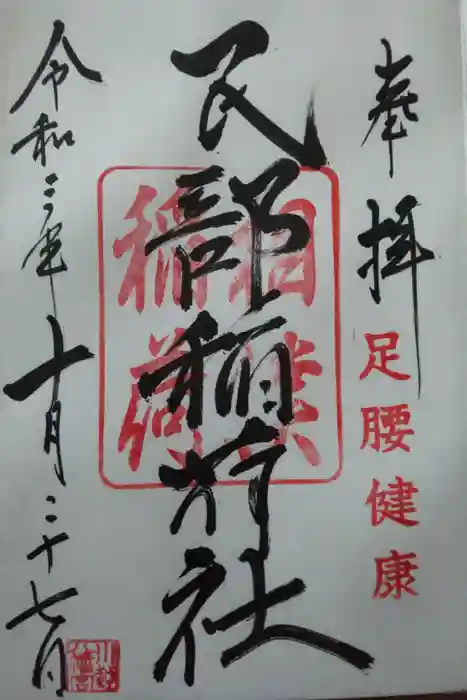 奉拝
足腰健康
民部稲荷社
相撲
稲荷
令和二年十月二十七日